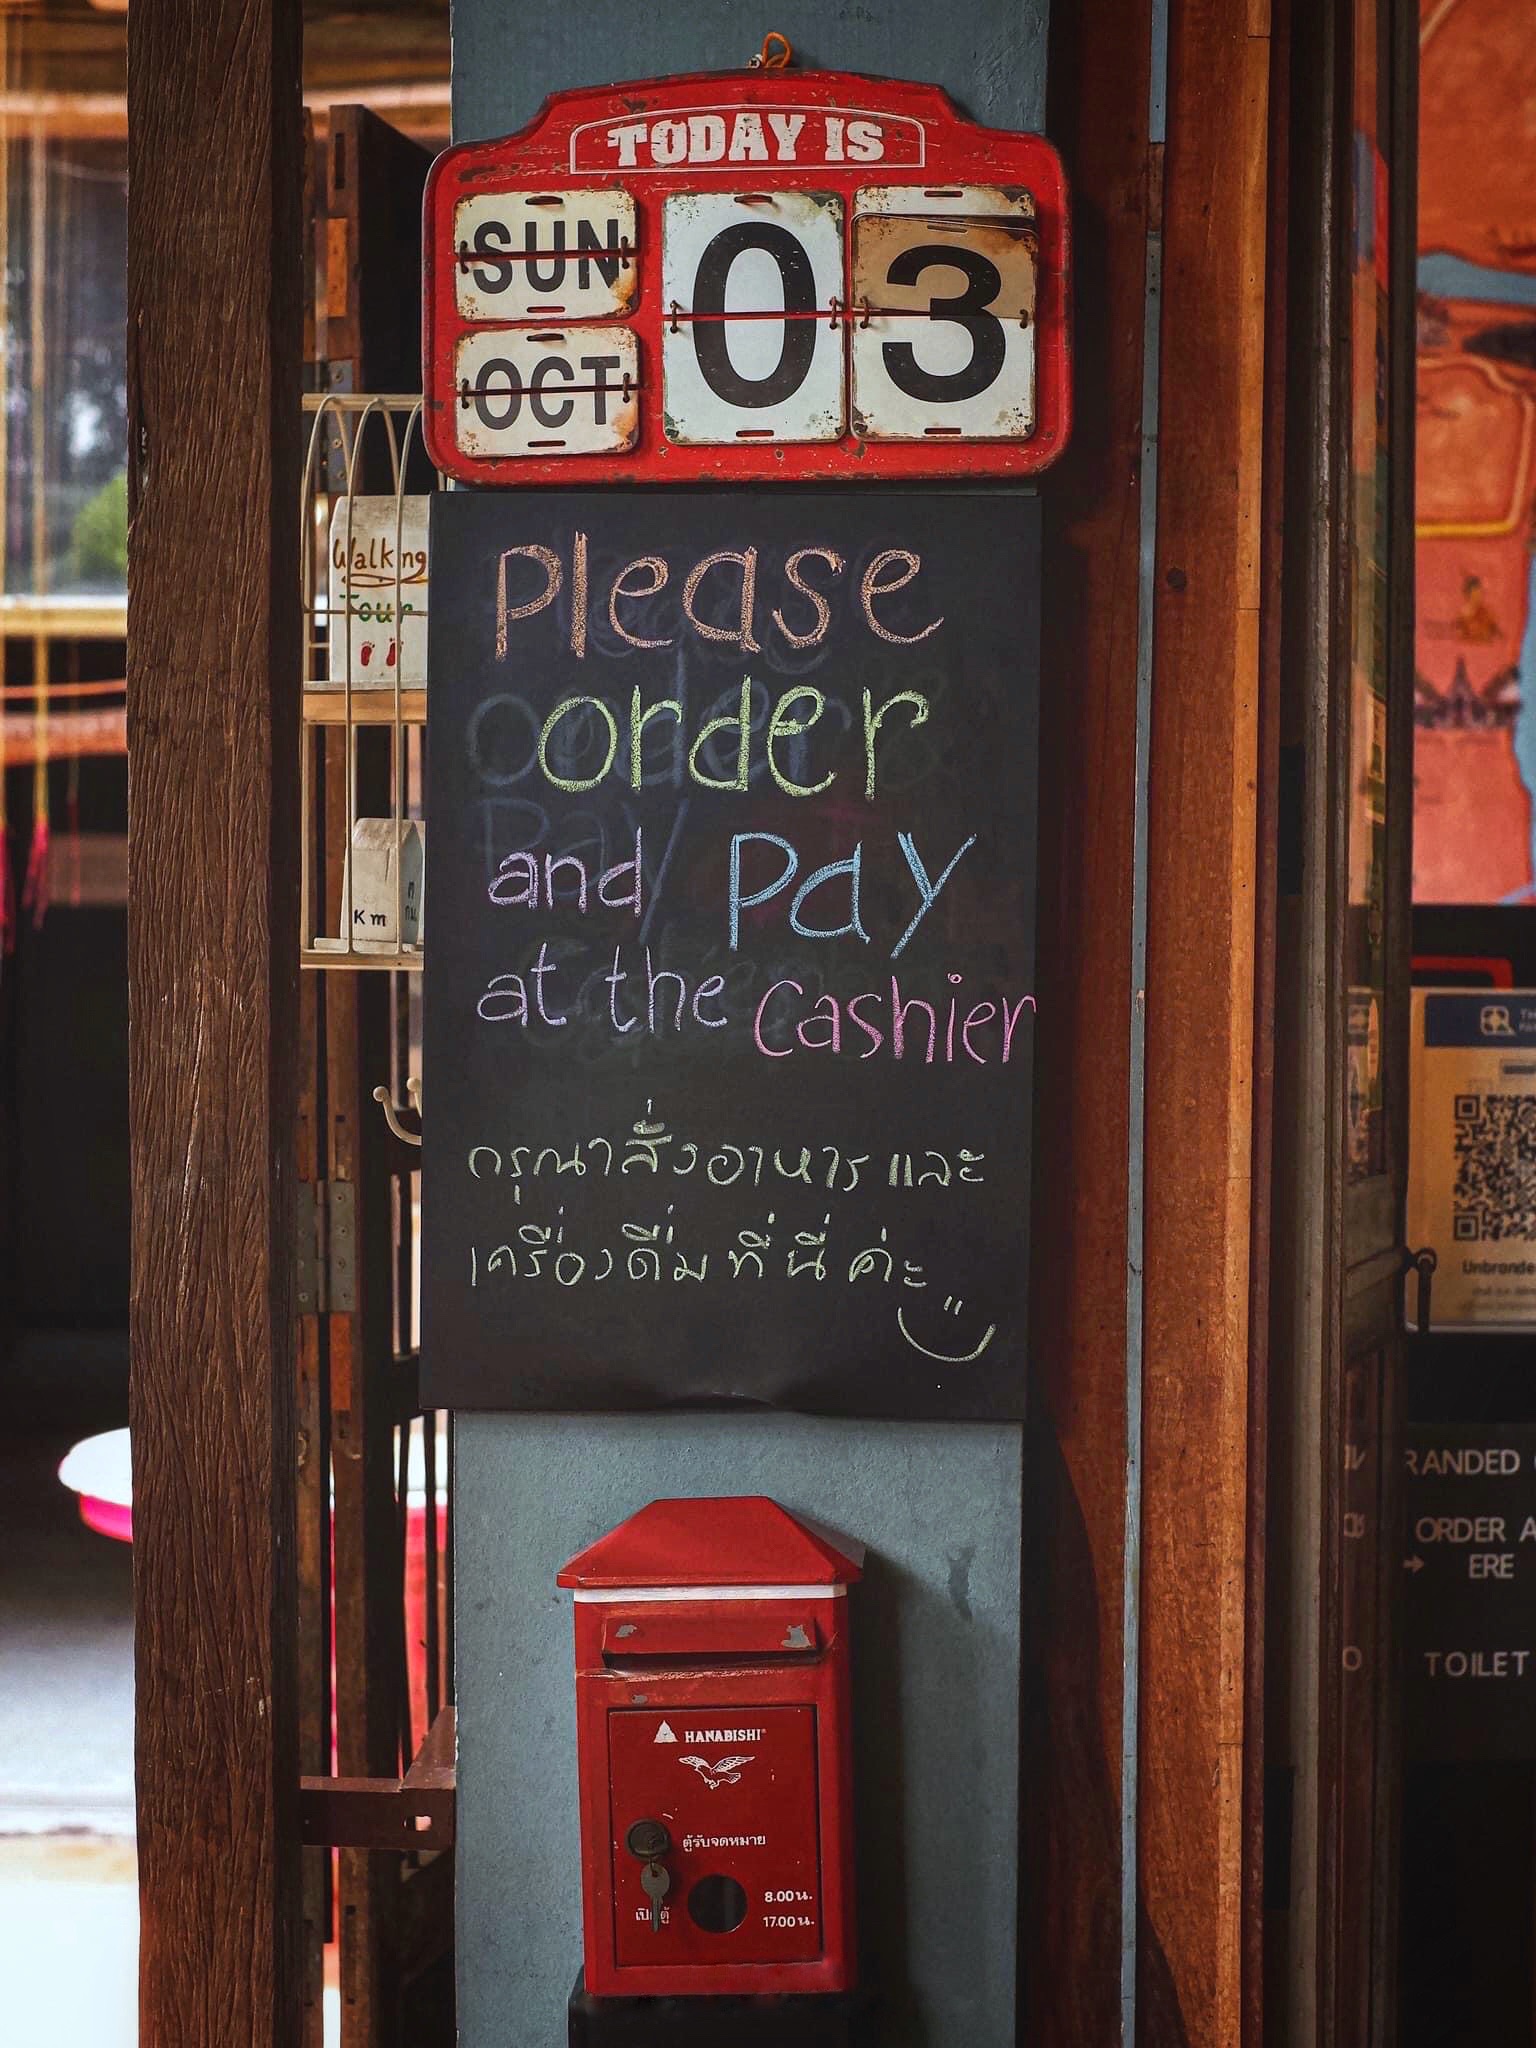 TODAY IS
SUN
OCT
03
Walking
Tour
Km
Please
order
and Pay
at the Cashier
กรุณาสั่งอาหาร และ
เครื่องดื่มที่นี่ ค่ะ
HANABISHI
ตู้รับจดหมาย
เปิดตู้
8.00 น.
17.00 น.
ORDER
TOILET